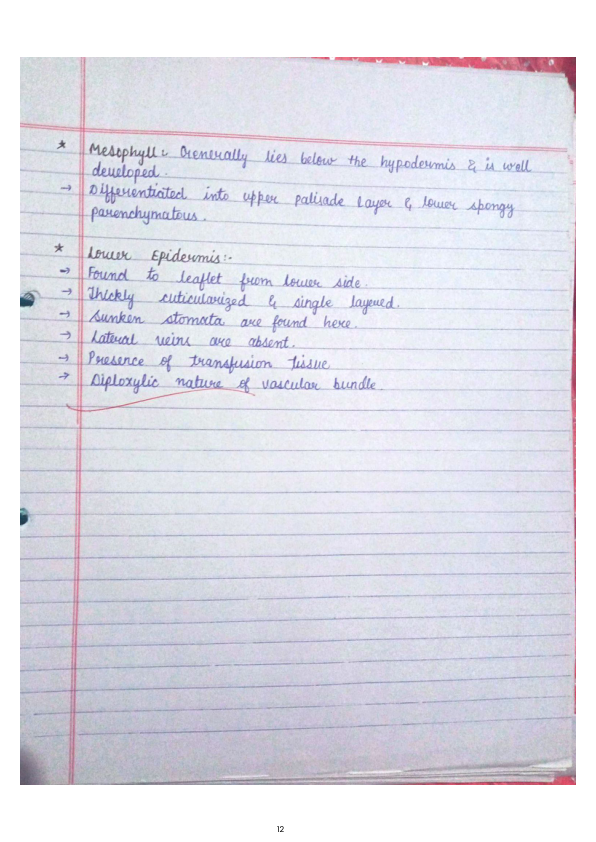 * Mesophyll :- Generally lies below the hypodermis & is well
developed.
→ Differentiated into upper palisade layer & lower spongy
parenchymatous.
* Lower Epidermis:-
→ Found to leaflet from lower side.
→ Thickly cuticularized & single layered.
→ Sunken stomata are found here.
→ Lateral veins are absent.
→ Presence of transfusion tissue
→ Diploxylic nature of vascular bundle.
12